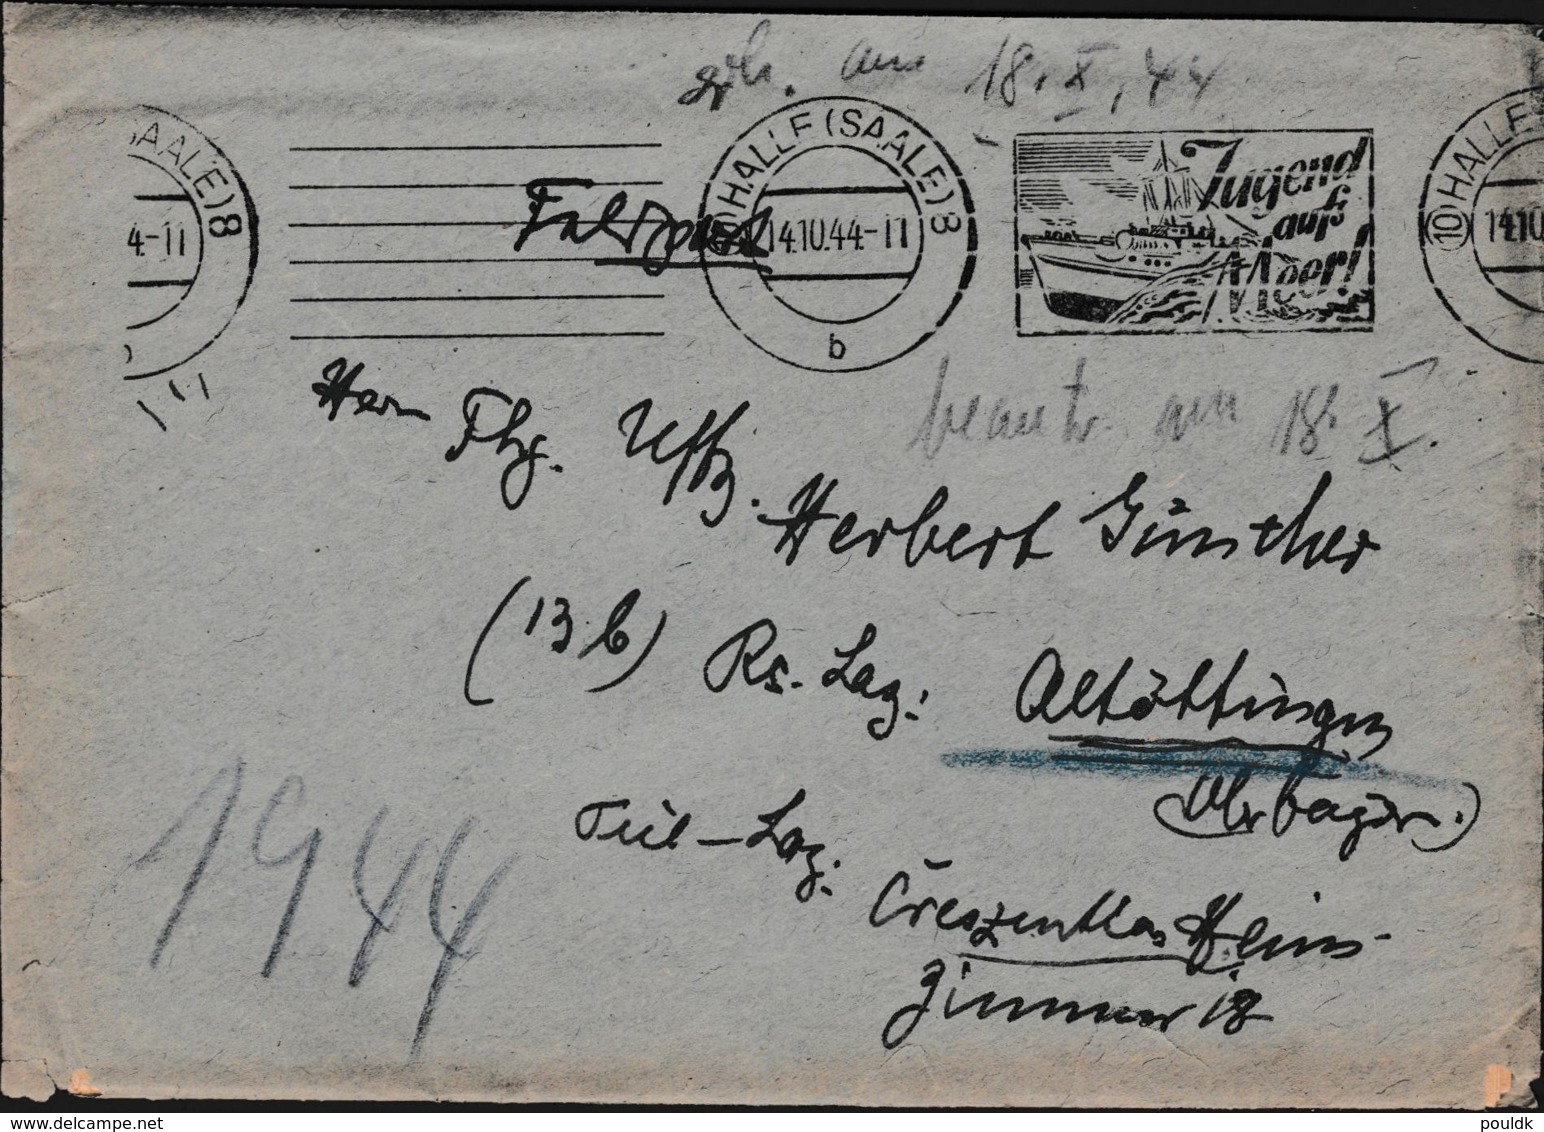 erh. am 18. X. 44
SAALE) 8
4-11
Feldpost
(10) HALLE (SAALE) 8
14.10.44-11
b
Jugend
aufs
Meer!
(10) HALLE
14.10
beantw. am 18. X.
Herrn
Fhg. Uffz. Herbert Günther
(13 b) Rs. Laz: Altötting
(Obr Bayern.)
Teil-Laz:
Creszentia Heim-
Zimmer 18
1944
www.delcampe.net
pouldk